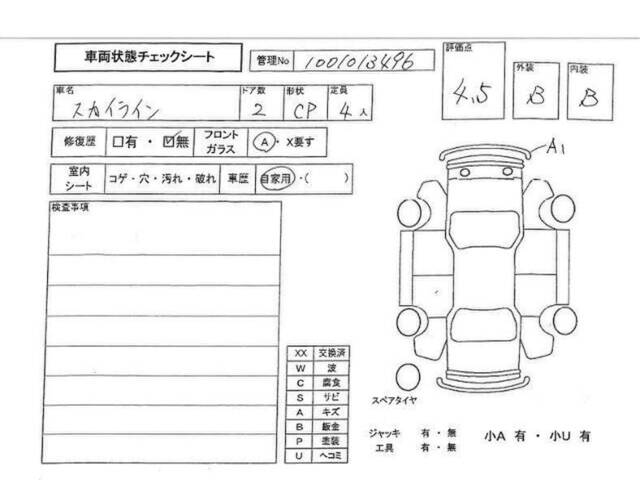 車両状態チェックシート
管理No 1001013496
評価点 4.5
外装 B
内装 B
車名 スカイライン
ドア数 2
形状 CP
定員 4人
修復歴 □有・☑無
フロントガラス A・X要す
室内シート コゲ・穴・汚れ・破れ
車歴 自家用・( )
検査事項
A1
XX 交換済
W 波
C 腐食
S サビ
A キズ
B 鈑金
P 塗装
U ヘコミ
スペアタイヤ
ジャッキ 有・無
工具 有・無
小A 有・小U 有